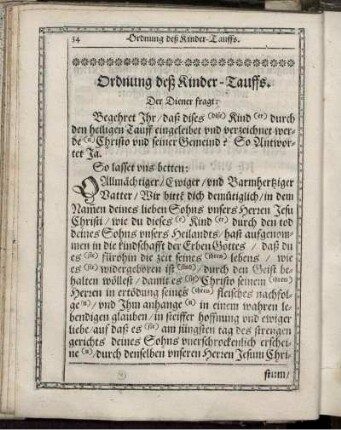 34 Ordnung deß Kinder-Tauffs.
Ordnung deß Kinder-Tauffs.
Der Diener fragt:
Begehret Ihr/ daß dises (dise) Kind (er) durch
den heiligen Tauff eingeleibet vnd verzeichnet wer-
de (n) Christo vnd seiner Gemeind? So Antwor-
tet Ja.
So lasset vns betten:
O Allmächtiger/ Ewiger/ vnd Barmhertziger
Vatter/ Wir bittẽ dich demütiglich/ in dem
Namen deines lieben Sohns vnsers Herren Jesu
Christi/ wie du dieses (e) Kind (er) durch den tod
deines Sohns vnsers Heilandts/ hast aufgenom-
men in die kindschafft der Erben Gottes/ daß du
es (sie) fürohin die zeit seines (ihres) lebens/ wie
es (sie) widergeboren ist (sind)/ durch den Geist be-
halten wöllest/ damit es (sie) Christo seinem (ihrem)
Herren in ertödung seines (ihres) fleisches nachfol-
ge (n)/ vnd Ihm anhange (n) in einem wahren le-
bendigen glauben/ in steiffer hoffnung vnd ewiger
liebe/ auf daß es (sie) am jüngsten tag des strengen
gerichts deines Sohns vnerschrockenlich erschei-
ne (n)/ durch denselben vnseren Herren Jesum Chri-
stum/